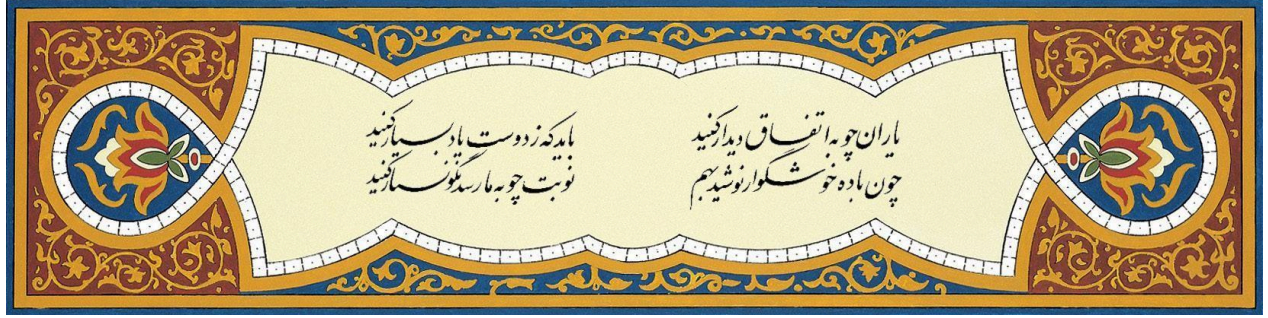 یاران چو به اتفاق دیدار کنید
باید که ز دوست یاد بسیار کنید
چون باده خوشگوار نوشید بهم
نوبت چو به ما رسد نگونسار کنید